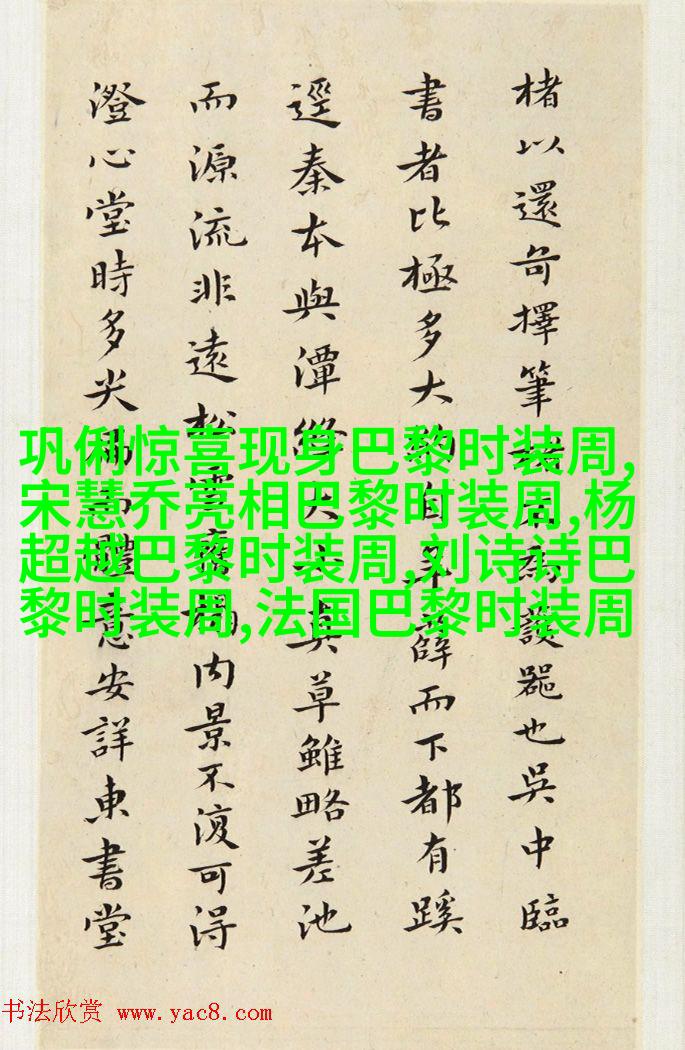 楮以還奇擇筆器也吳中臨
書者比極多大自年薛而下都有蹊
逕秦本與潭絳大真草雖略差池
而源流非遠松内景不復可得
澄心堂時多尖體意安詳東書堂
巩俐惊喜现身巴黎时装周,
宋慧乔亮相巴黎时装周,杨
超越巴黎时装周,刘诗诗巴
黎时装周,法国巴黎时装周
书法欣赏 www.yac8.com